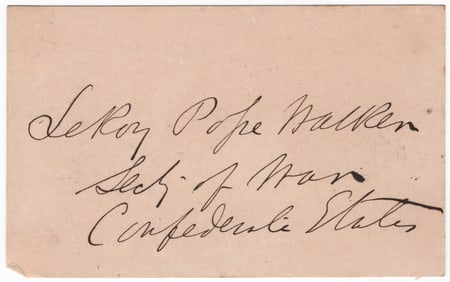 LeRoy Pope Walker
Secty of War
Confederate States